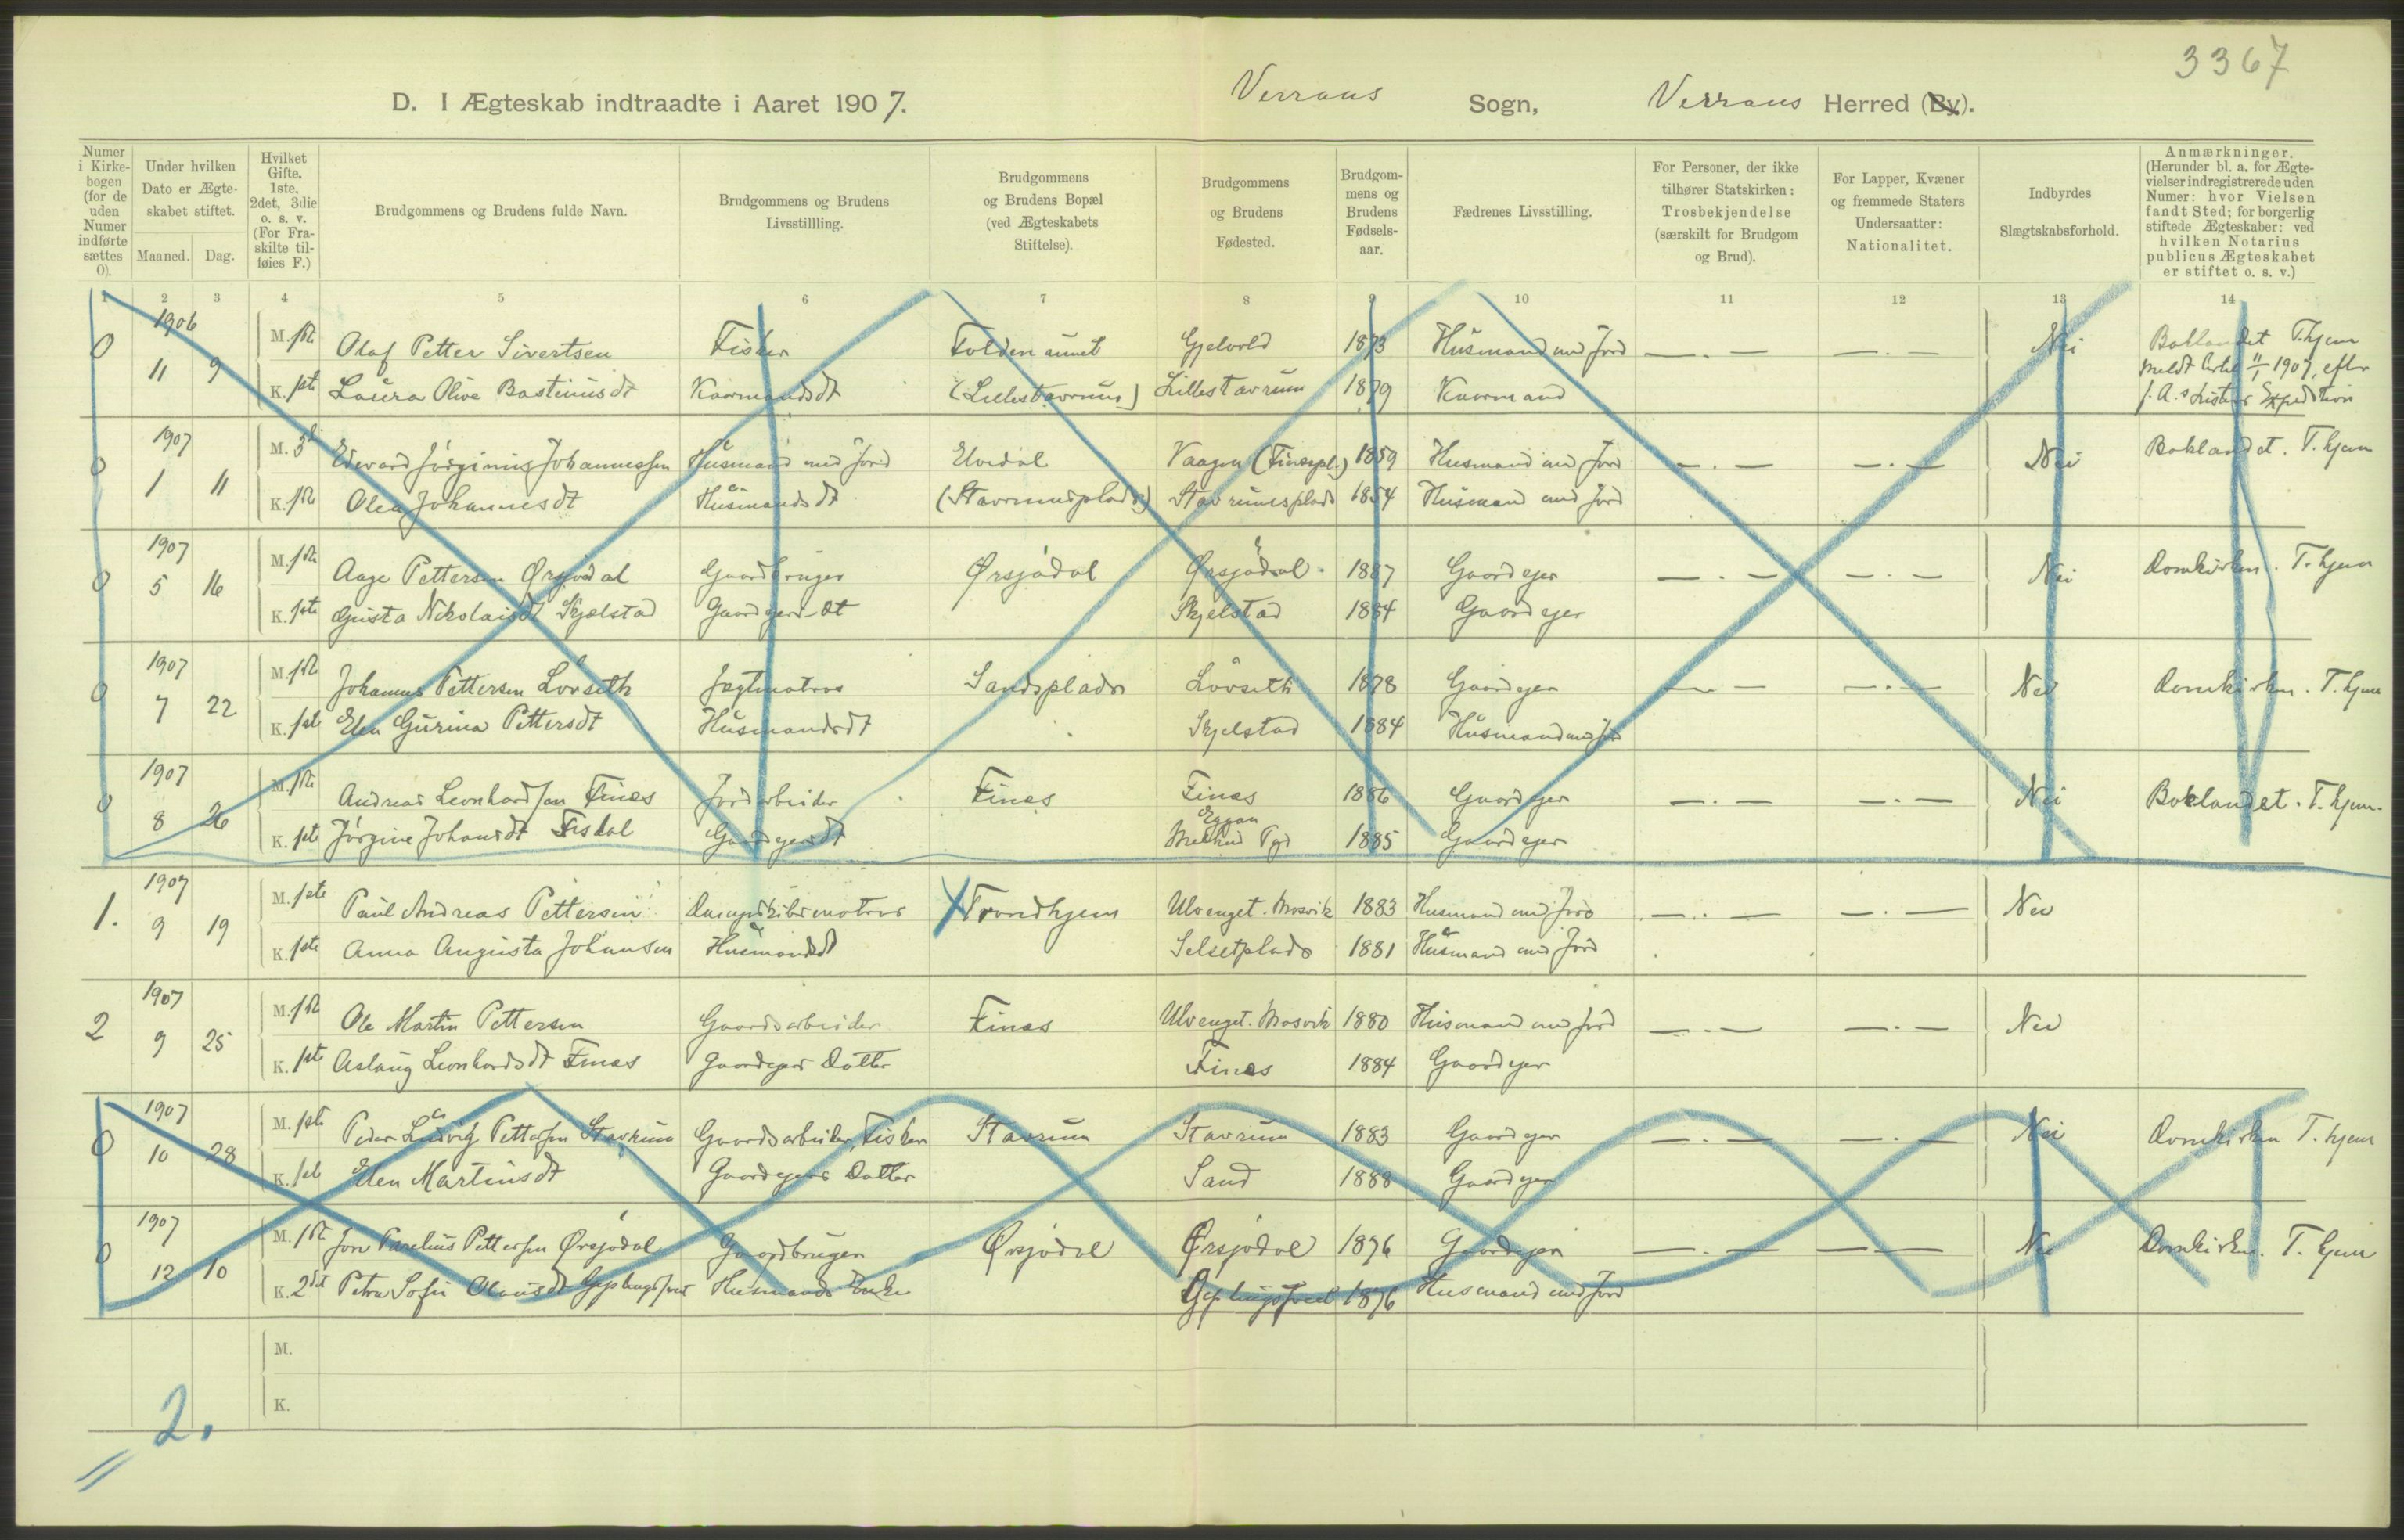 3367
D. I Ægteskab indtraadte i Aaret 1907. Verrans Sogn, Verrans Herred (By).
Numer i Kirkebogen (for de uden Numer indførte sættes 0).
Under hvilken Dato er Ægteskabet stiftet.
Maaned. Dag.
Hvilket Gifte. 1ste. 2det, 3die o. s. v. (For Fraskilte tilføies F.)
Brudgommens og Brudens fulde Navn.
Brudgommens og Brudens Livsstillling.
Brudgommens og Brudens Bopæl (ved Ægteskabets Stiftelse).
Brudgommens og Brudens Fødested.
Brudgommens og Brudens Fødselsaar.
Fædrenes Livsstilling.
For Personer, der ikke tilhører Statskirken: Trosbekjendelse (særskilt for Brudgom og Brud).
For Lapper, Kvæner og fremmede Staters Undersaatter: Nationalitet.
Indbyrdes Slægtskabsforhold.
Anmærkninger. (Herunder bl. a. for Ægtevielser indregistrerede uden Numer: hvor Vielsen fandt Sted; for borgerlig stiftede Ægteskaber: ved hvilken Notarius publicus Ægteskabet er stiftet o. s. v.)
1 2 3 4 5 6 7 8 9 10 11 12 13 14
1906
0 11 9 M. 1ste Olaf Petter Sivertsen Fisker 1873 Husmand med Jord —.— —.— Nei Baklandet T.hjem
K. 1ste Laura Olive Bastiniusdt Kaarmandsdt (Lillestavrum) Lillestavrum 1879 Kaarmand
1907
0 1 11 M. 3d Edevard Jørginius Johannessen Husmand med Jord Elvedal Vaagen (Finespl.) 1859 Husmand med Jord —.— —.— Nei Baklandet. T.hjem
K. 1ste Olea Johannesdt Husmandsdt (Stavrumsplads) Stavrumsplads 1854 Husmand med Jord
1907
0 5 16 M. 1ste Aage Pettersen Ørsjødal Gaardbruger Ørsjødal Ørsjødal 1887 Gaardejer —.— —.— Nei Domkirken. T.hjem
K. 1ste Gusta Nikolaisdt Skjelstad Gaardejers dt Skjelstad 1884 Gaardejer
1907
0 7 22 M. 1ste Johannes Pettersen Løvseth Jægtmatros Sandsplads Løvseth 1878 Gaardejer —.— —.— Nei Domkirken. T.hjem
K. 1ste Elen Gurina Pettersdt Husmandsdt Skjelstad 1884 Husmand med Jord
1907
0 8 26 M. 1ste Andreas Leonhardsen Fines Jordarbeider Fines Fines 1886 Gaardejer —.— —.— Nei Baklandet. T.hjem.
K. 1ste Jørgine Johansdt Gaardejersdt 1885 Gaardejer
1907
1. 9 19 M. 1ste Paul Andreas Pettersen Dampskibsmatros X Trondhjem Ulvenget. Mosvik 1883 Husmand med Jord —.— —.— Nei
K. 1ste Anna Augusta Johansen Husmandsdt Selsetplads 1881 Husmand med Jord
1907
2 9 25 M. 1ste Ole Martin Pettersen Gaardsarbeider Fines Ulvenget. Mosvik 1880 Husmand med Jord —.— —.— Nei
K. 1ste Aslaug Leonhardsdt Fines Gaardejers Datter Fines 1884 Gaardejer
1907
0 10 28 M. 1ste Peder Ludvig Pettersen Stavrum Gaardsarbeider, Fisker Stavrum Stavrum 1883 Gaardejer —.— —.— Nei Domkirken T.hjem
K. 1ste Elen Martinsdt Gaardejers Datter Sand 1888 Gaardejer
1907
0 12 10 M. 1ste Pettersen Ørsjødal Gaardbruger Ørsjødal Ørsjødal 1876 Gaardejer —.— —.— Nei Domkirken. T.hjem
K. 2det Petra Sofie Olausdt Husmands Enke 1876 Husmand med Jord
M.
K.
2.